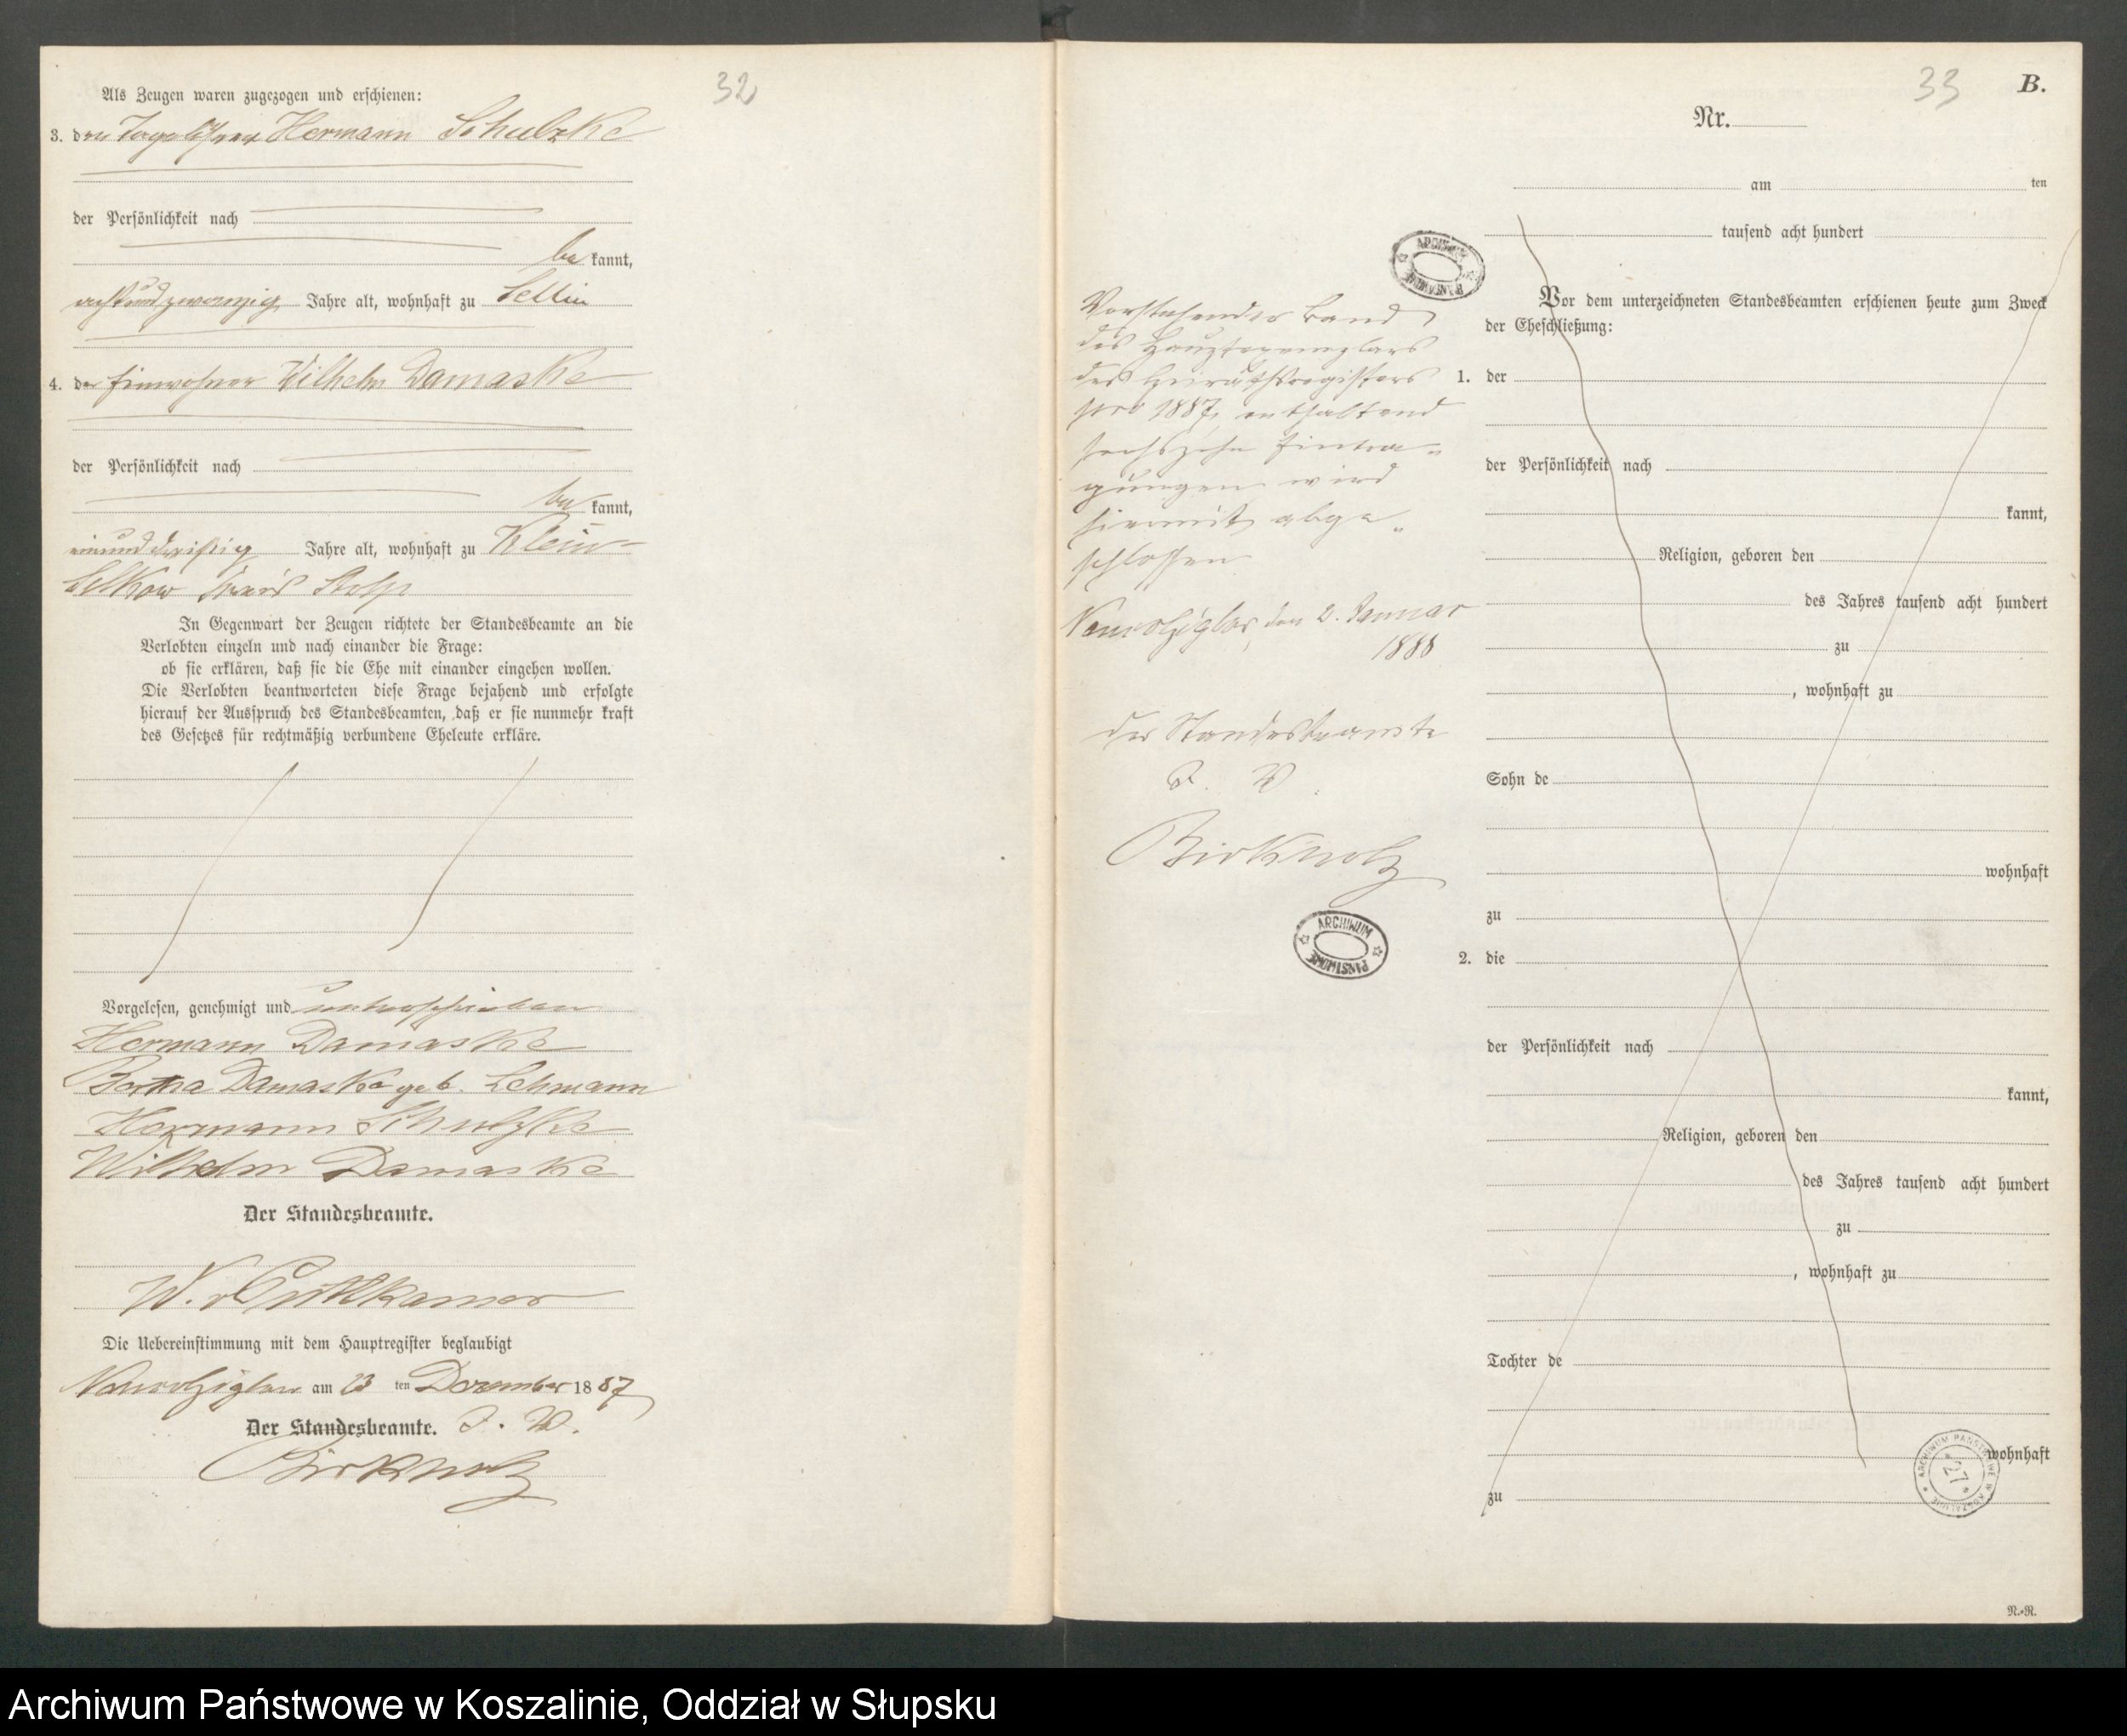 32
Als Zeugen waren zugezogen und erschienen:
3. den Tagelöhner Hermann Schulzke
der Persönlichkeit nach
be kannt,
achtundzwanzig Jahre alt, wohnhaft zu Sellin
4. der Einwohner Wilhelm Damaske
der Persönlichkeit nach
be kannt,
einunddreißig Jahre alt, wohnhaft zu Klein-
Silkow Kreis Stolp
In Gegenwart der Zeugen richtete der Standesbeamte an die
Verlobten einzeln und nach einander die Frage:
ob sie erklären, daß sie die Ehe mit einander eingehen wollen.
Die Verlobten beantworteten diese Frage bejahend und erfolgte
hierauf der Ausspruch des Standesbeamten, daß er sie nunmehr kraft
des Gesetzes für rechtmäßig verbundene Eheleute erkläre.
Vorgelesen, genehmigt und unterschrieben
Hermann Damaske
Bertha Damaske geb. Lehmann
Hermann Schulzke
Wilhelm Damaske
Der Standesbeamte.
W. v Puttkamer
Die Uebereinstimmung mit dem Hauptregister beglaubigt
am 13 ten Dezember 1887
Der Standesbeamte. I. V.
Birkholz
33 B.
Nr.
am ten
tausend acht hundert
ARCHIWUM PAŃSTWOWE
Vorstehender Band
des Hauptexemplars
des Heirathsregisters
pro 1887, enthaltend
sechszehn Eintra-
gungen wird
hiermit abge-
schlossen
den 2. Januar
1888
Der Standesbeamte
I. V.
Birkholz
ARCHIWUM PAŃSTWOWE
Vor dem unterzeichneten Standesbeamten erschienen heute zum Zweck
der Eheschließung:
1. der
der Persönlichkeit nach
kannt,
Religion, geboren den
des Jahres tausend acht hundert
zu
, wohnhaft zu
Sohn de
wohnhaft
zu
2. die
der Persönlichkeit nach
kannt,
Religion, geboren den
des Jahres tausend acht hundert
zu
, wohnhaft zu
Tochter de
wohnhaft
zu
ARCHIWUM PAŃSTWOWE W KOSZALINIE
27
R.-R.
Archiwum Państwowe w Koszalinie, Oddział w Słupsku